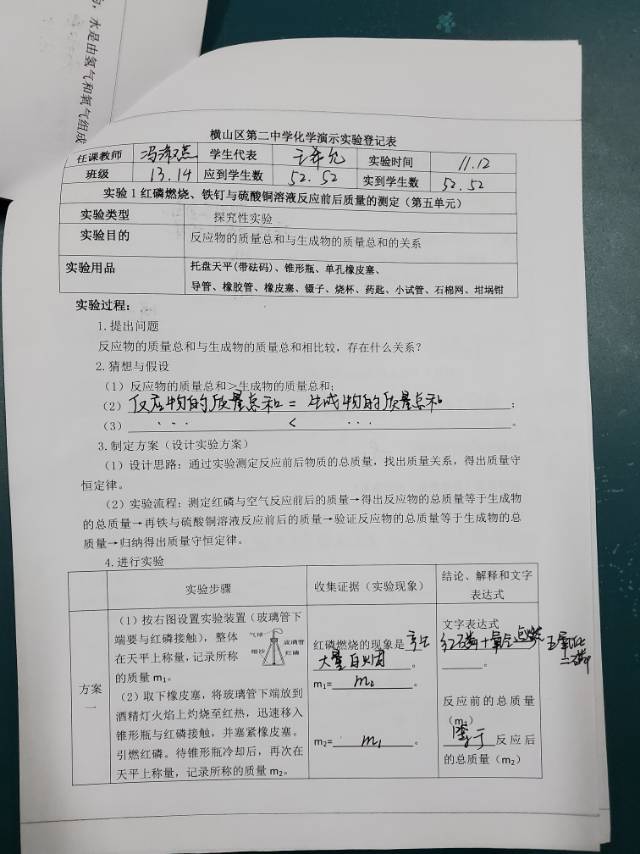 水是由氢气和氧气组成
横山区第二中学化学演示实验登记表
任课教师 学生代表 实验时间 11.12
班级 13.14 应到学生数 52.52 实到学生数 52.52
实验1 红磷燃烧、铁钉与硫酸铜溶液反应前后质量的测定（第五单元）
实验类型 探究性实验
实验目的 反应物的质量总和与生成物的质量总和的关系
实验用品 托盘天平(带砝码)、锥形瓶、单孔橡皮塞、
导管、橡胶管、橡皮塞、镊子、烧杯、药匙、小试管、石棉网、坩埚钳
实验过程：
1.提出问题
反应物的质量总和与生成物的质量总和相比较，存在什么关系？
2.猜想与假设
（1）反应物的质量总和＞生成物的质量总和;
（2）反应物的质量总和 = 生成物的质量总和；
（3）... < ...。
3.制定方案（设计实验方案）
（1）设计思路：通过实验测定反应前后物质的总质量，找出质量关系，得出质量守
恒定律。
（2）实验流程：测定红磷与空气反应前后的质量→得出反应物的总质量等于生成物
的总质量→再铁与硫酸铜溶液反应前后的质量→验证反应物的总质量等于生成物的总
质量→归纳得出质量守恒定律。
4.进行实验
实验步骤 收集证据（实验现象） 结论、解释和文字
表达式
方案
一
（1）按右图设置实验装置（玻璃管下
端要与红磷接触），整体
在天平上称量，记录所称
的质量 m₁。
（2）取下橡皮塞，将玻璃管下端放到
酒精灯火焰上灼烧至红热，迅速移入
锥形瓶与红磷接触，并塞紧橡皮塞。
引燃红磷。待锥形瓶冷却后，再次在
天平上称量，记录所称的质量 m₂。
气球
玻璃管
细沙
红磷
红磷燃烧的现象是产生
大量白烟。
m₁= m₂ 。
m₂= m₁ 。
文字表达式
红磷+氧气 点燃 五氧化
二磷
。
反应前的总质量
（m₁）
等于 反应后
的总质量（m₂）